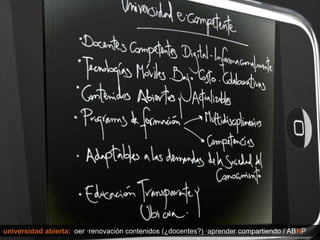 Universidad e-competente
· Docentes Competentes Digital-Informacionalmente
· Tecnologías Móviles Bajo Costo. Colaborativas
· Contenidos Abiertos y Actualizados
· Programas de formación → Multidisciplinarios
→ Competencias
· Adaptables a las demandas de la Sociedad del
Conocimiento
· Educación Transparente y
Ubicua.
universidad abierta: oer ·renovación contenidos (¿docentes?) ·aprender compartiendo / ABNP